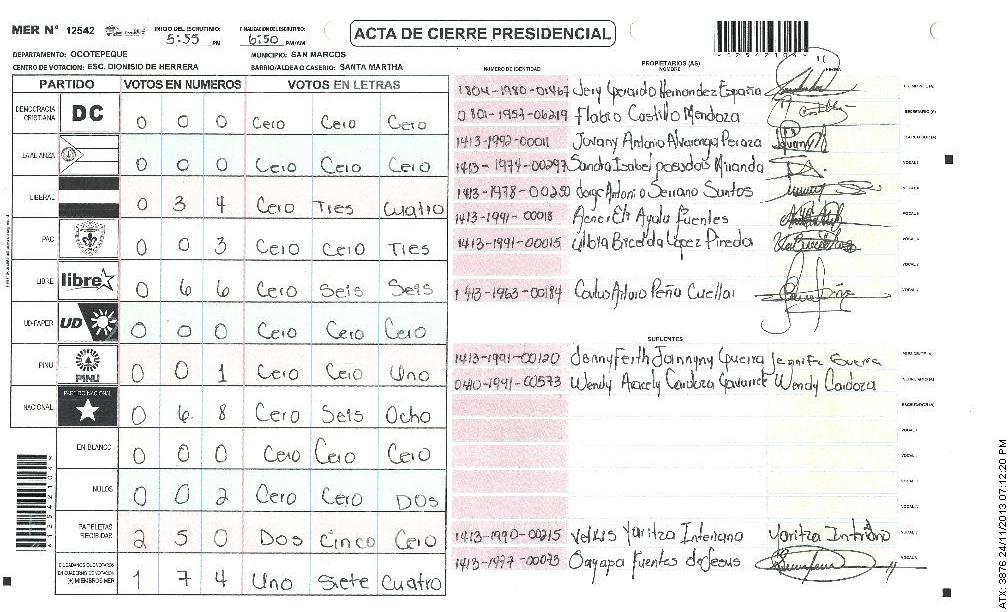 MER Nº 12542
INICIO DEL ESCRUTINIO: 5:55 PM
FINALIZACION DEL ESCRUTINIO: 6:50 PM/AM
ACTA DE CIERRE PRESIDENCIAL
DEPARTAMENTO: OCOTEPEQUE
MUNICIPIO: SAN MARCOS
CENTRO DE VOTACION: ESC. DIONISIO DE HERRERA
BARRIO/ALDEA O CASERIO: SANTA MARTHA
PARTIDO VOTOS EN NUMEROS VOTOS EN LETRAS
DEMOCRACIA CRISTIANA DC 0 0 0 Cero Cero Cero
LA ALIANZA 0 0 0 Cero Cero Cero
LIBERAL 0 3 4 Cero Tres Cuatro
PAC 0 0 3 Cero Cero Tres
LIBRE libre 0 6 6 Cero Seis Seis
UD-FAPER UD 0 0 0 Cero Cero Cero
PINU PINU 0 0 1 Cero Cero Uno
NACIONAL PARTIDO NACIONAL 0 6 8 Cero Seis Ocho
EN BLANCO 0 0 0 Cero Cero Cero
NULOS 0 0 2 Cero Cero Dos
PAPELETAS RECIBIDAS 2 5 0 Dos Cinco Cero
CIUDADANOS QUE VOTARON EN CUADERNO DE VOTACION (+) MIEMBROS MER 1 7 4 Uno Siete Cuatro
NUMERO DE IDENTIDAD
PROPIETARIOS (AS)
NOMBRE
FIRMA
1804-1980-01467 Jery Gerardo Hernandez España
0801-1957-06219 Flabio Castillo Mendoza
1413-1992-00011 Jovany Antonio Alvarenga Peraza
1413-1974-00297 Sandra Isabel posadas Miranda
1413-1978-00250 Jorge Antonio Serrano Santos
1413-1991-00018 Ayala fuentes
1413-1991-00015 Lopez Pineda
1413-1963-00184 Carlos Arturo Peña Cuellar
SUPLENTES
1413-1991-00120 Guerra Jennifer Guerra
Wendy Aracely Cardoza Wendy Cardoza
1413-1990-00215 Yaritza Interiano Yaritza Intriano
1413-1977-00073 fuentes de Jesus
12542104
ATX: 3876 24/11/2013 07:12:20 PM